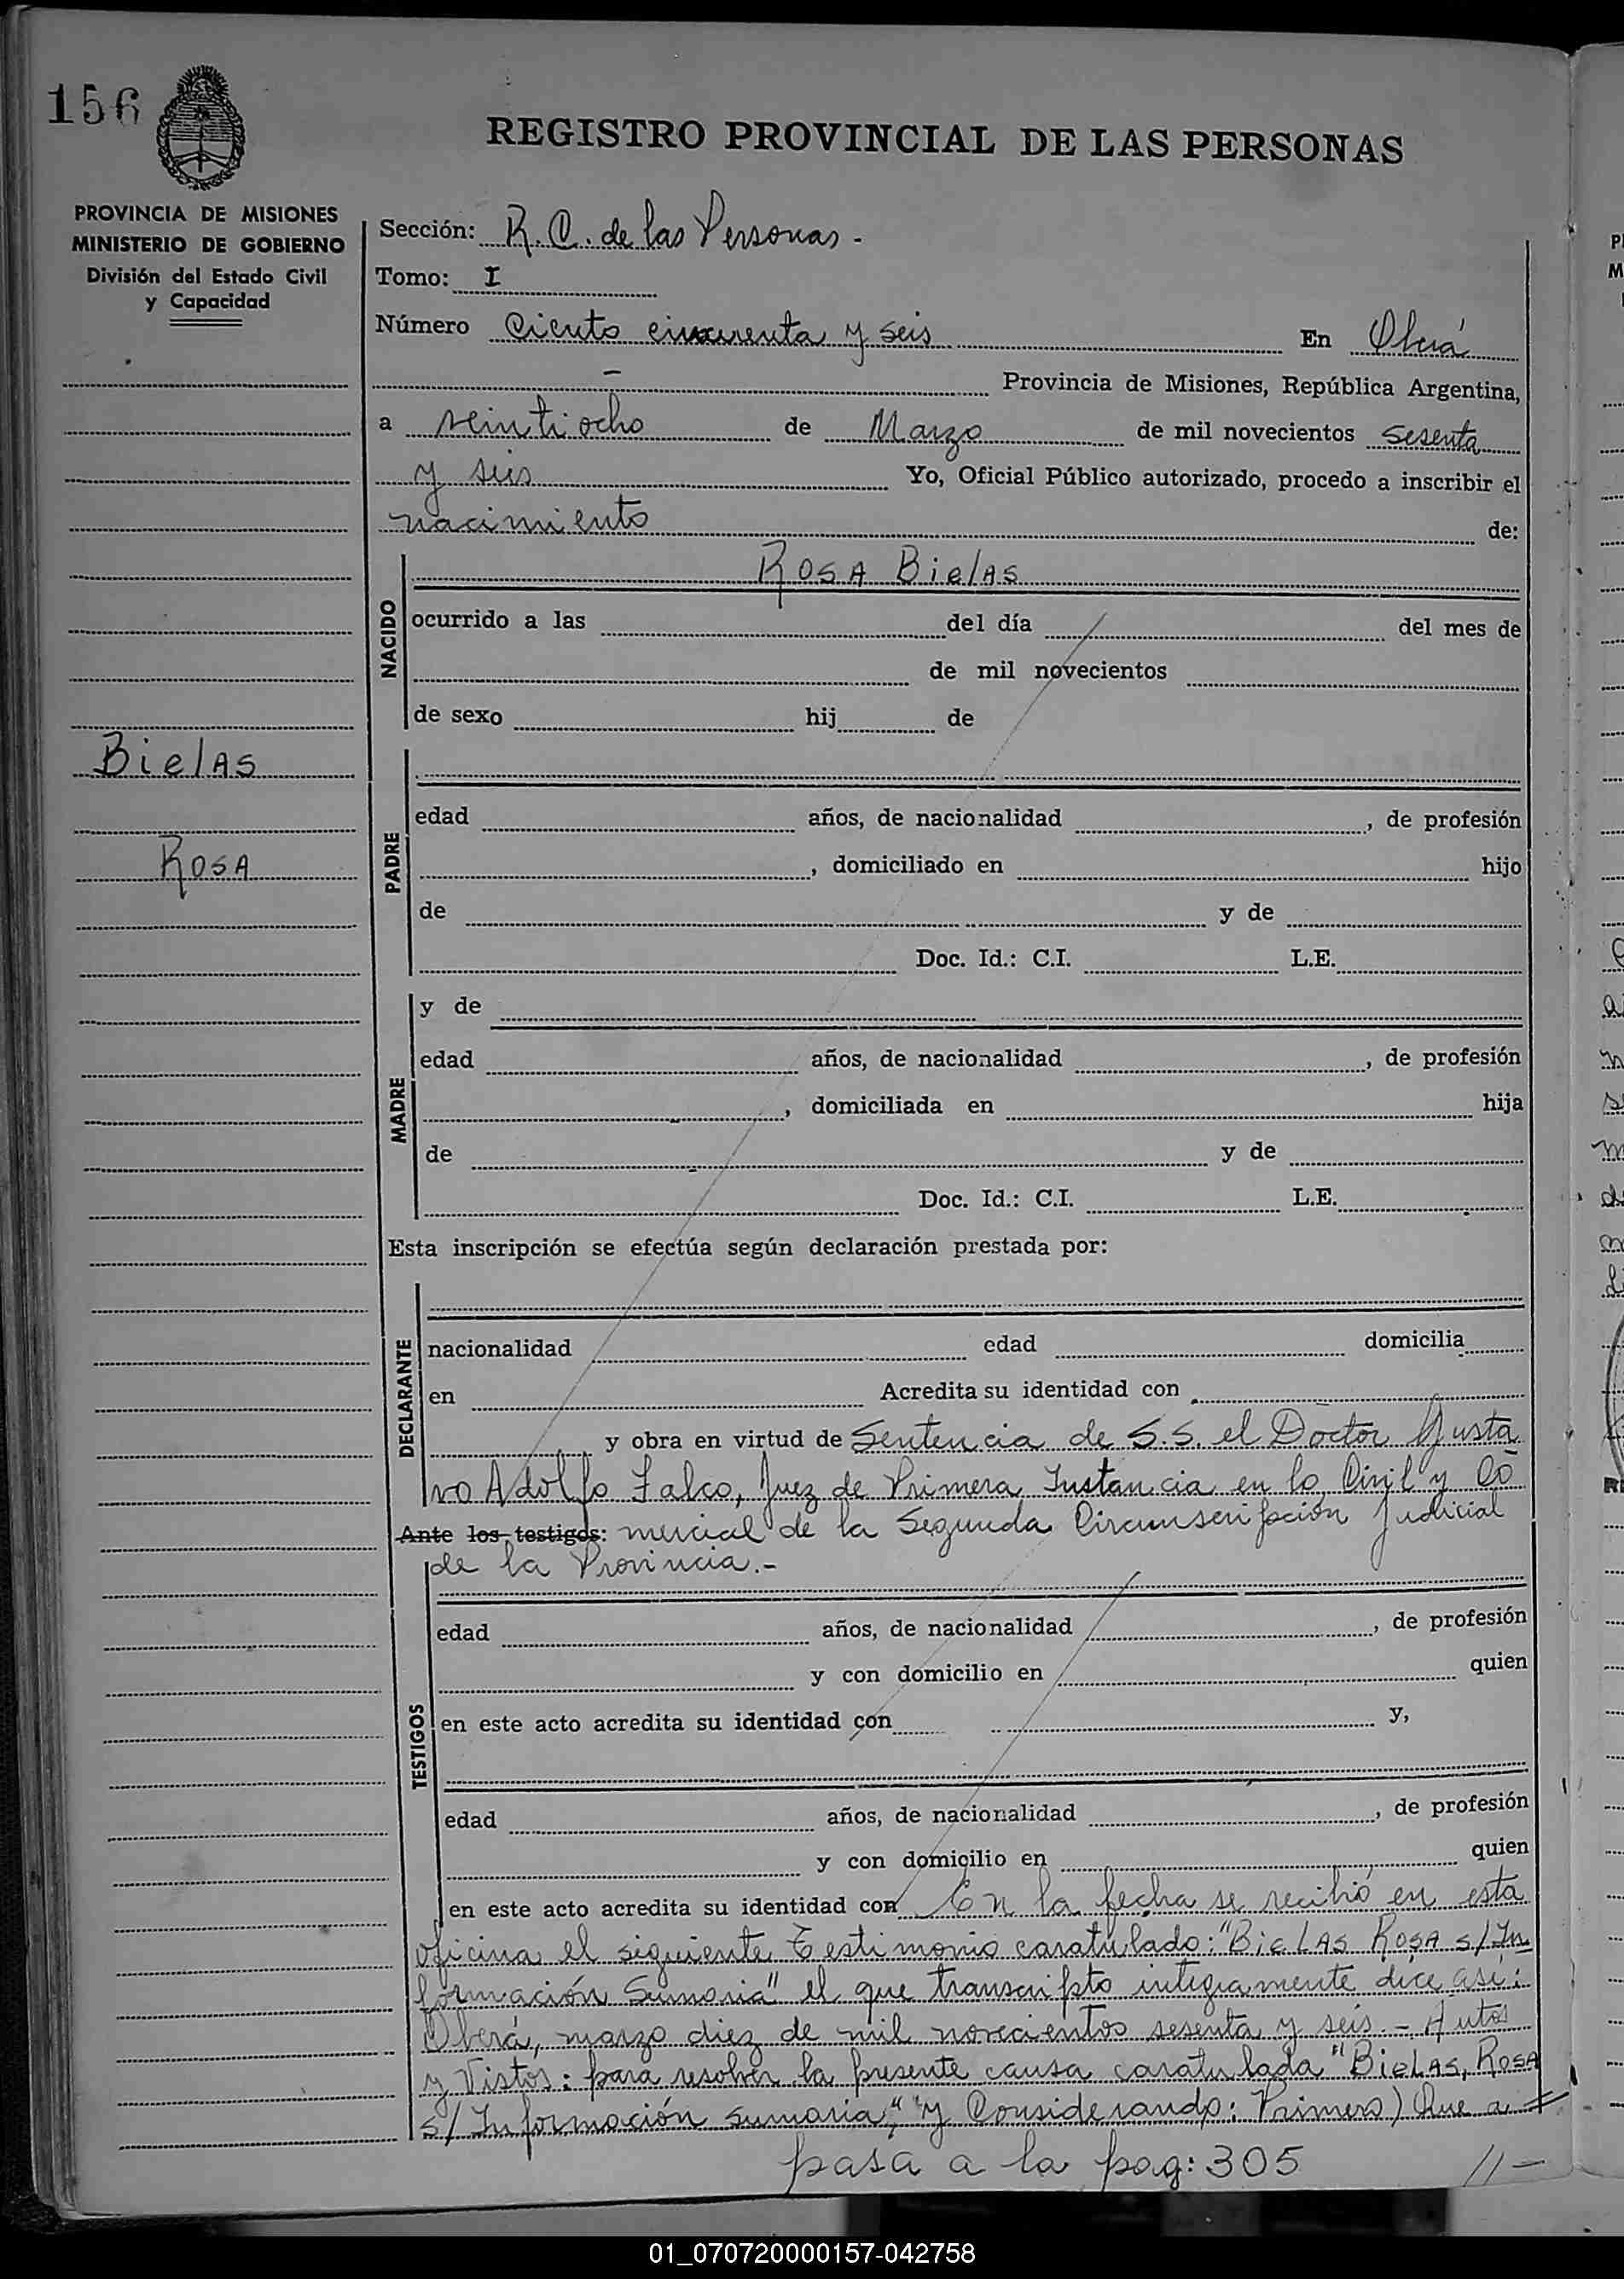 156
REGISTRO PROVINCIAL DE LAS PERSONAS
PROVINCIA DE MISIONES
MINISTERIO DE GOBIERNO
División del Estado Civil
y Capacidad
Sección: R. C. de las Personas.-
Tomo: I
Número Ciento cincuenta y seis En Oberá
Provincia de Misiones, República Argentina,
a veintiocho de Marzo de mil novecientos sesenta
y seis Yo, Oficial Público autorizado, procedo a inscribir el
nacimiento de:
NACIDO
Rosa Bielas
ocurrido a las del día del mes de
de mil novecientos
de sexo hij de
Bielas
Rosa
PADRE
edad años, de nacionalidad , de profesión
, domiciliado en hijo
de y de
Doc. Id.: C.I. L.E.
MADRE
y de
edad años, de nacionalidad , de profesión
, domiciliada en hija
de y de
Doc. Id.: C.I. L.E.
Esta inscripción se efectúa según declaración prestada por:
DECLARANTE
nacionalidad edad domicilia
en Acredita su identidad con
y obra en virtud de Sentencia de S.S. el Doctor Gusta
vo Adolfo Falco, Juez de Primera Instancia en lo Civil y Co
Ante los testigos: mercial de la Segunda Circunscripción Judicial
de la Provincia.-
TESTIGOS
edad años, de nacionalidad , de profesión
y con domicilio en quien
en este acto acredita su identidad con y,
edad años, de nacionalidad , de profesión
y con domicilio en quien
en este acto acredita su identidad con En la fecha se recibió en esta
oficina el siguiente Testimonio caratulado: "Bielas Rosa s/In
formación Sumaria" el que transcripto integramente dice así:
Oberá, marzo diez de mil novecientos sesenta y seis.- Autos
y Vistos: para resolver la presente causa caratulada "Bielas, Rosa
s/Información sumaria", "y Considerando: Primero) Que a
pasa a la pag: 305 //-
01_070720000157-042758